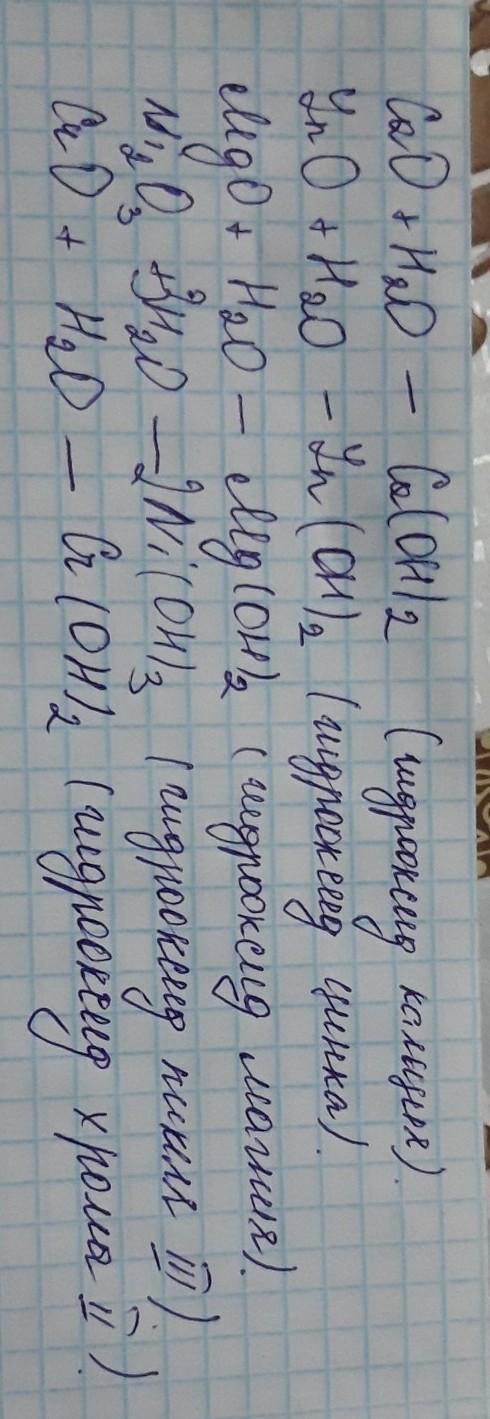 CaO + H2O — Ca(OH)2 (гидрооксид кальция).
ZnO + H2O — Zn(OH)2 (гидрооксид цинка).
MgO + H2O — Mg(OH)2 (гидрооксид магния).
Ni2O3 + 3H2O — 2Ni(OH)3 (гидрооксид никеля III).
CrO + H2O — Cr(OH)2 (гидрооксид хрома II).